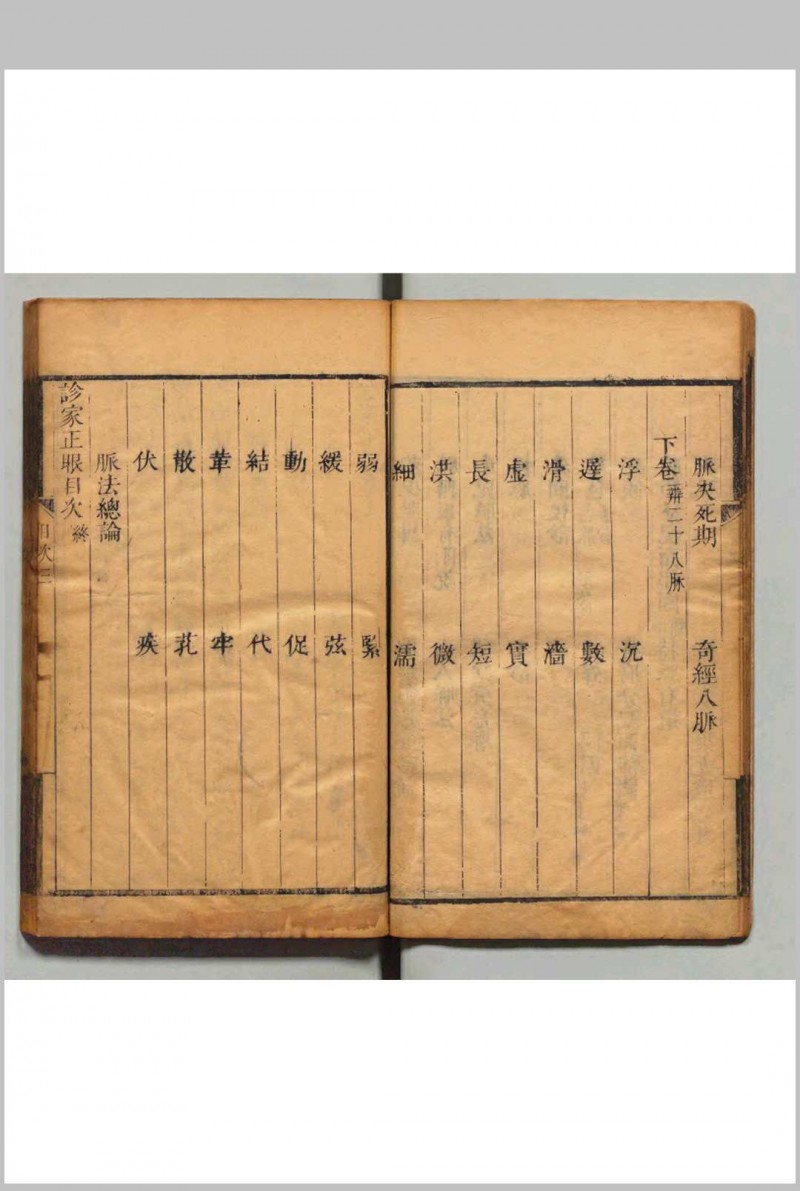 脈決死期　奇經八脈
下卷 辨二十八脈
浮　沉
遲　數
滑　濇
虛　實
長　短
洪　微
細　濡
弱　緊
緩　弦
動　促
結　代
革　牢
散　芤
伏　疾
脈法總論
診家正眼目次 終
目次 三